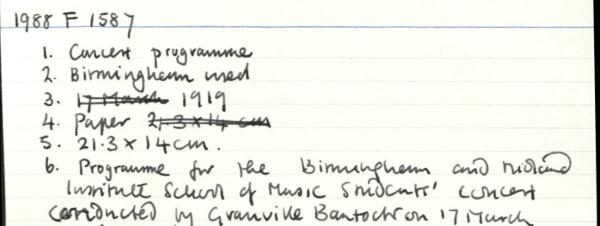 1988 F 1587
1. Concert programme
2. Birmingham used
3. 17 March 1919
4. Paper 21.3 x 14 cm
5. 21.3 x 14 cm.
6. Programme for the Birmingham and Midland
Institute School of Music Students' concert
conducted by Granville Bantock on 17 March